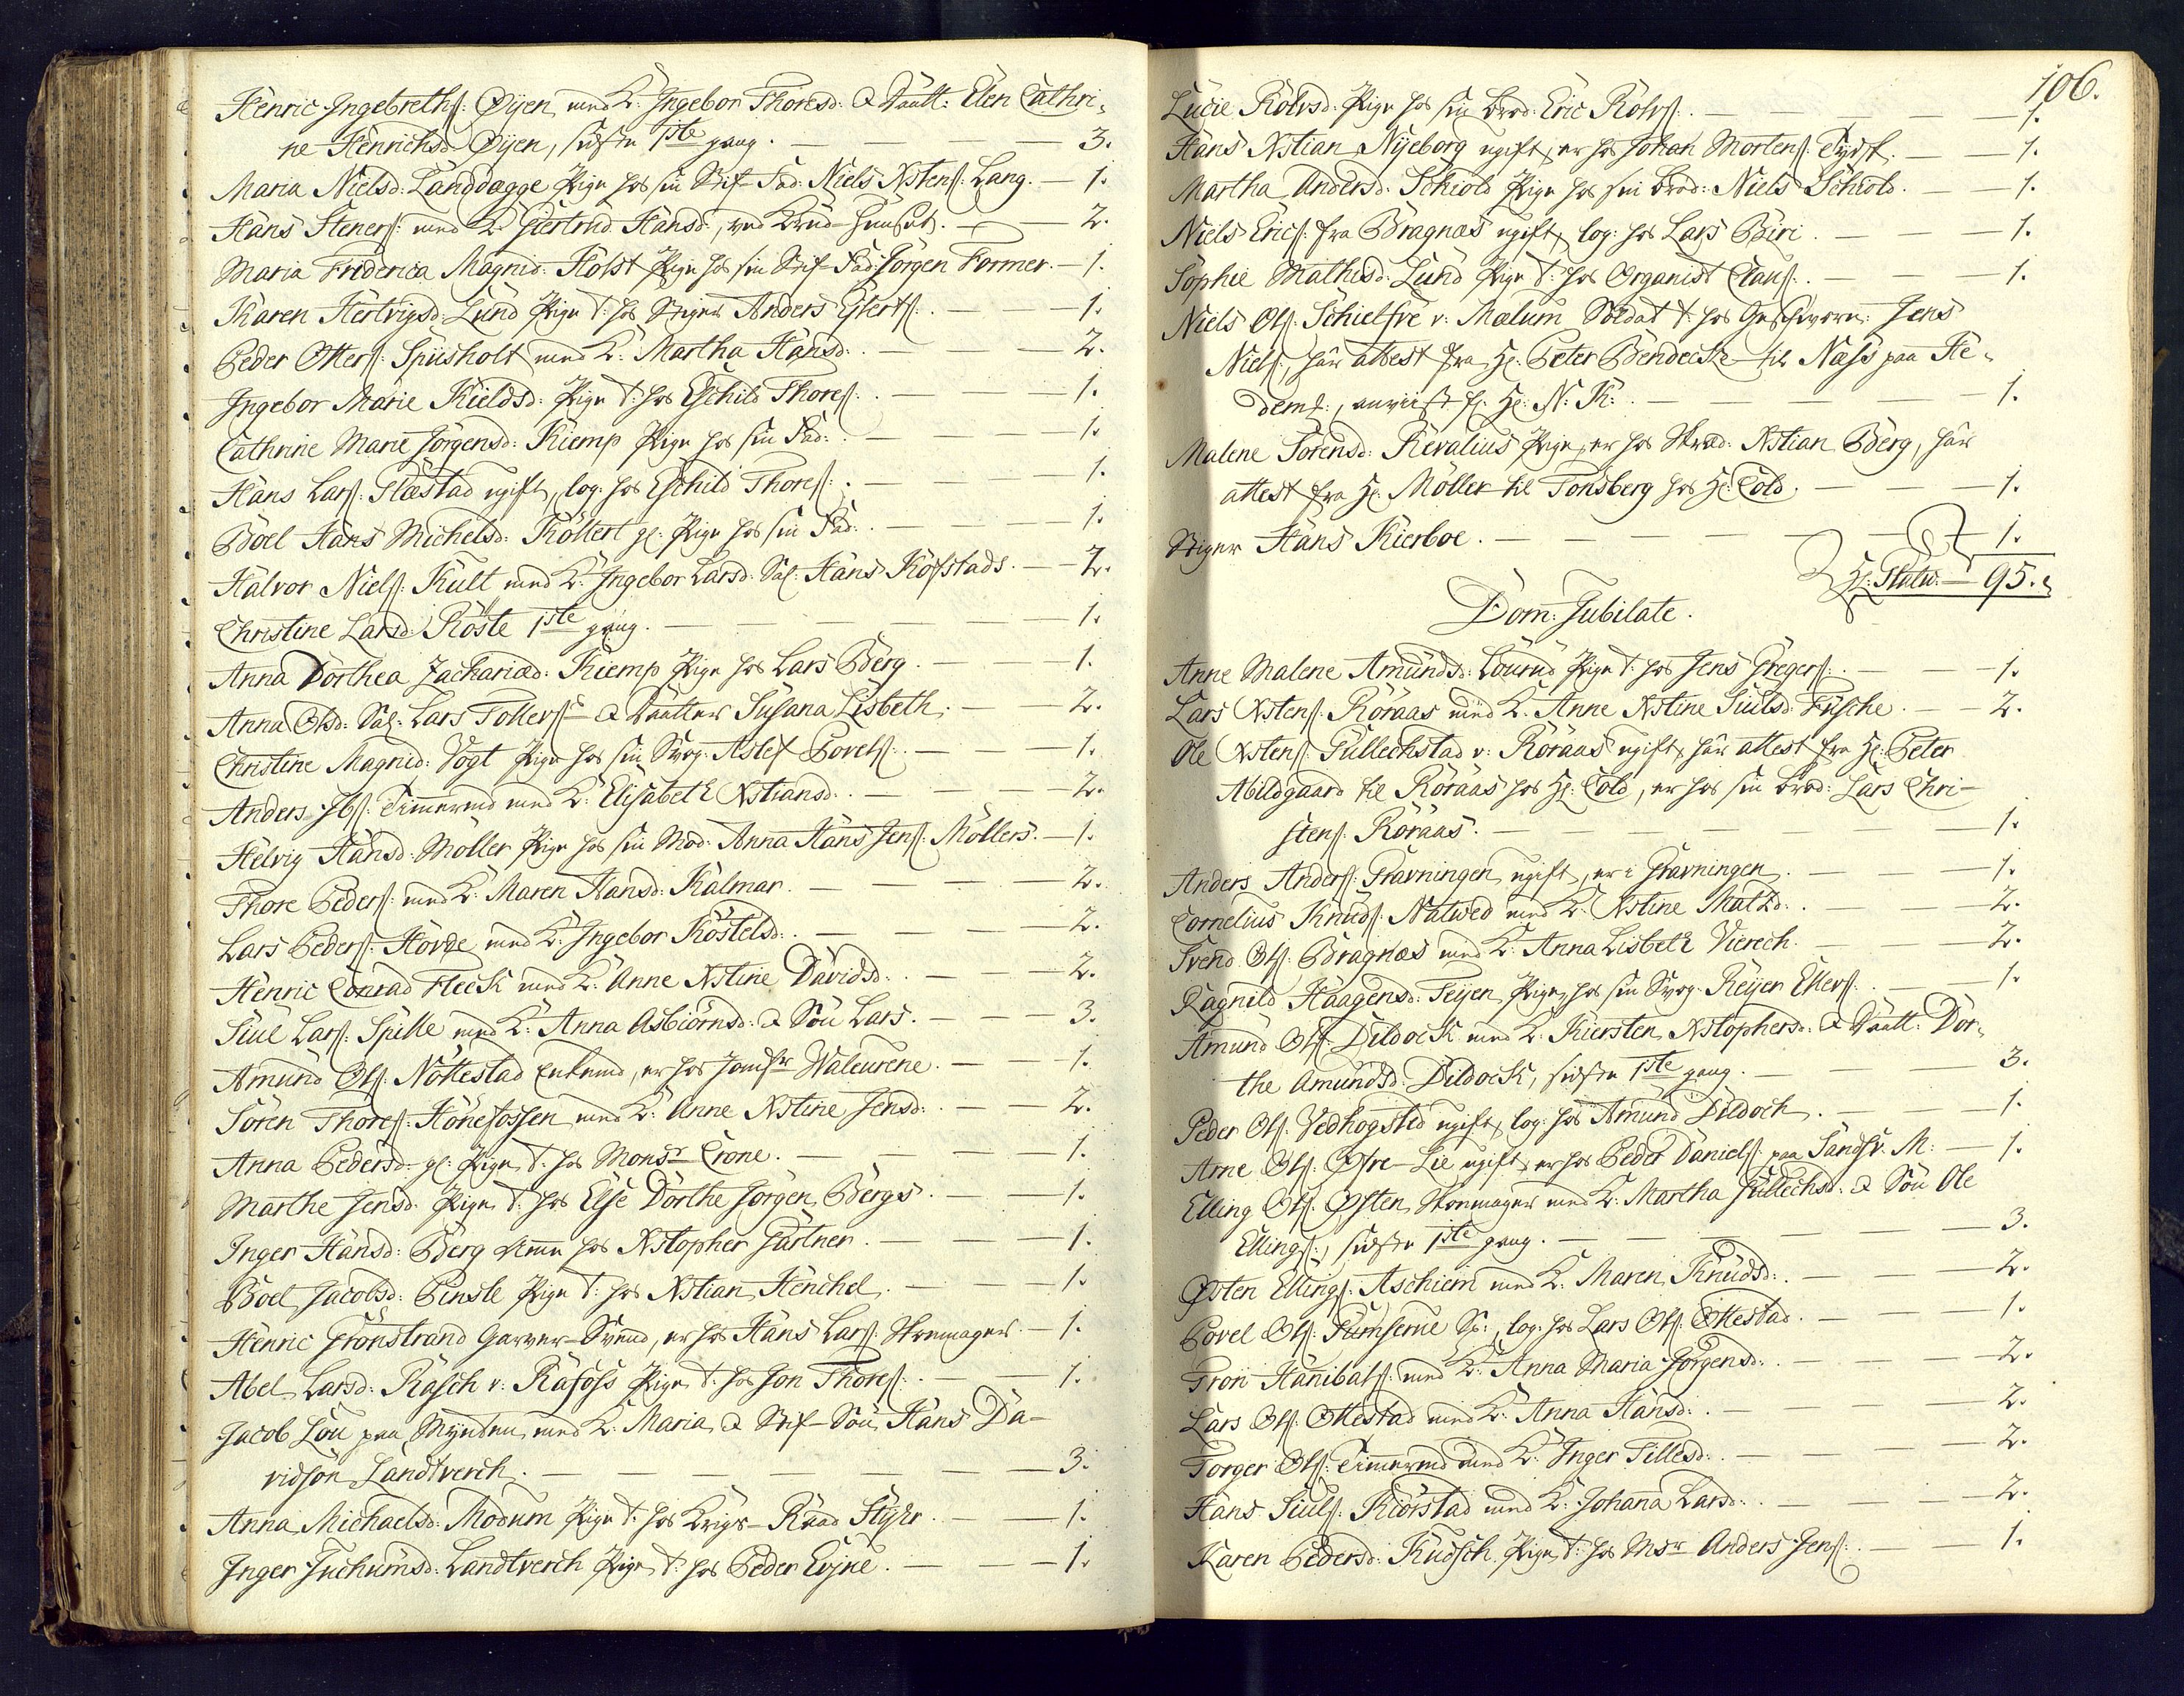 Henric Ingebrethß: Øÿen, med K: Ingebor Thoresd: & Daatt: Elen Cathri-
ne Henrichsd: Øÿen, sidste 1ste gang. — 3.
Maria Nielsd: Landdagge Pige hos sin Stif-Fad: Niels Xstenß: Lang. — 1.
Hans Stenerß: med K: Giertrud Hansd:, ved Brud-Huuset. — 2.
Maria Friderica Magnid: Holst Pige hos sin Stif-Fad: Jörgen Former. — 1.
Karen Hertvigsd: Lund Pige t: hos Stiger Anders Gÿertß: — 1.
Peder Otterß: Spiisholt med K: Martha Hansd: — 2.
Ingebor Marie Kieldsd: Pige t: hos Eschild Thoreß: — 1.
Cathrine Marie Jörgensd: Kiemp Pige hos sin Fad: — 1.
Hans Larß: Flæstad ugift, log: hos Eschild Thoreß: — 1.
Boel Hans Michelsd: Köllert gl: Pige hos sin Fad: — 1.
Halvor Nielß: Kult med K: Ingebor Larsd: Sal: Hans Kofstads. — 2.
Christine Larsd: Röste 1ste gang. — 1.
Anna Dorthea Zachariæd: Kiemp Pige hos Lars Berg. — 1.
Anna Olsd: Sal: Lars Tollerß: & Daatter Susana Lisbeth. — 2.
Christine Magnid: Vogt Pige hos sin Svog: Aslef Povelß: — 1.
Anders Ibß: Timermd med K: Elisabeth Xstiansd: — 2.
Helvig Hansd: Möller Pige hos sin Mod: Anna Hans Jenß: Möllers. — 1.
Thore Pederß: med K: Maren Hansd: Kalmar. — 2.
Lars Pederß: Hovde med K: Ingebor Köstelsd: — 2.
Henric Conrad Fleck med K: Anne Xstine Davidsd: — 2.
Siul Larß: Spille med K: Anna Asbiörnsd: & Sön Lars. — 3.
Amund Olß: Nöttestad Enkemd, er hos Jomfr Waleurene. — 1.
Sören Thoreß: Hönefossen med K: Anne Xstine Jensd: — 2.
Anna Pedersd: gl: Pige t: hos Monsr Crone. — 1.
Marthe Jensd: Pige t: hos Else Dorthe Jörgen Bergs. — 1.
Inger Hansd: Berg Amme hos Xstopher Gartner. — 1.
Boel Jacobsd: Pinsle Pige t: hos Xstian Henchel. — 1.
Henric Grönstrand Garver-Svend, er hos Hans Larß: Skoemager. — 1.
Abel Larsd: Rasch v: Rafoss Pige t: hos Jon Thoreß: — 1.
Jacob Lou paa Mynten med K: Maria & Stif-Sön Hans Da-
vidsön Landtverch. — 3.
Anna Michaelsd: Modum Pige t: hos Krigs-Raad Stÿhr. — 1.
Inger Juchumsd: Landtverch Pige t: hos Peder Evjne. — 1.
106.
Lucie Rolvsd: Pige hos sin Brod: Eric Rolvß: — 1.
Hans Xstian Nÿeborg ugift, er hos Johan Mortenß: Tydsk. — 1.
Martha Andersd: Schiold Pige hos sin Brod: Niels Schiold. — 1.
Niels Ericß: fra Bragnæs ugift, log: hos Lars Biri. — 1.
Sophie Mathisd: Lund Pige t: hos Organist Clauß: — 1.
Niels Olß: Schielfre v: Mælum Soldat t: hos Geschworn: Jens
Nielß:, har attest fra Hr: Peter Bendecke til Næss paa He-
dem:, anviist fr: Hr: N: K: — 1.
Malene Sörensd: Revalius Pige, er hos Skræd: Xstian Berg, har
attest fra Hr: Möller til Tonsberg hos Hr: Cold. — 1.
Stiger Hans Kierboe. — 1.
95.
Dom: Jubilate.
Anne Malene Amundsd: Lourud Pige t: hos Jens Gregerß: — 1.
Lars Xstenß: Röraas med K: Anne Xstine Siulsd: Fÿsche. — 2.
Ole Xstenß: Gullechstad v: Röraas ugift, har attest fra Hr: Peter
Abildgaard til Röraas hos Hr: Cold, er hos sin Brod: Lars Chri-
stenß: Röraas. — 1.
Anders Anderß: Gravningen ugift, er i Gravningen. — 1.
Cornelius Knudß: Natwed med K: Xstine Matzd: — 2.
Svend Olß: Bragnæs med K: Anna Lisbeth Vierech. — 2.
Ragnild Haagensd: Teÿen, Pige, hos sin Svog: Reÿer Ellerß: — 1.
Amund Olß: Dildock med K: Kiersten Xstophersd: & Daatt: Dor-
the Amundsd: Dildock, sidste 1ste gang. — 3.
Peder Olß: Vedhogsted ugift, log: hos Amund Dildoch. — 1.
Arne Olß: Øfre-Lie ugift, er hos Peder Danielß: paa Sandsv: M: — 1.
Elling Olß: Østen, Skoemager med K: Martha Gullechsd: & Sön Ole
Ellingß:, sidste 1ste gang. — 3.
Østen Ellingß: Aschiem med K: Maren Knudsd: — 2.
Povel Olß: Fumserue Sp:, log: hos Lars Olß: Ottestad. — 1.
Tron Hanibalß: med K: Anna Maria Jörgensd: — 2.
Lars Olß: Ottestad med K: Anna Hansd: — 2.
Torger Olß: Timmermd med K: Inger Tillesd: — 2.
Hans Siulß: Kiörstad med K: Johana Larsd: — 2.
Karen Pedersd: Kudsch Pige t: hos Msr Anders Jenß: — 1.